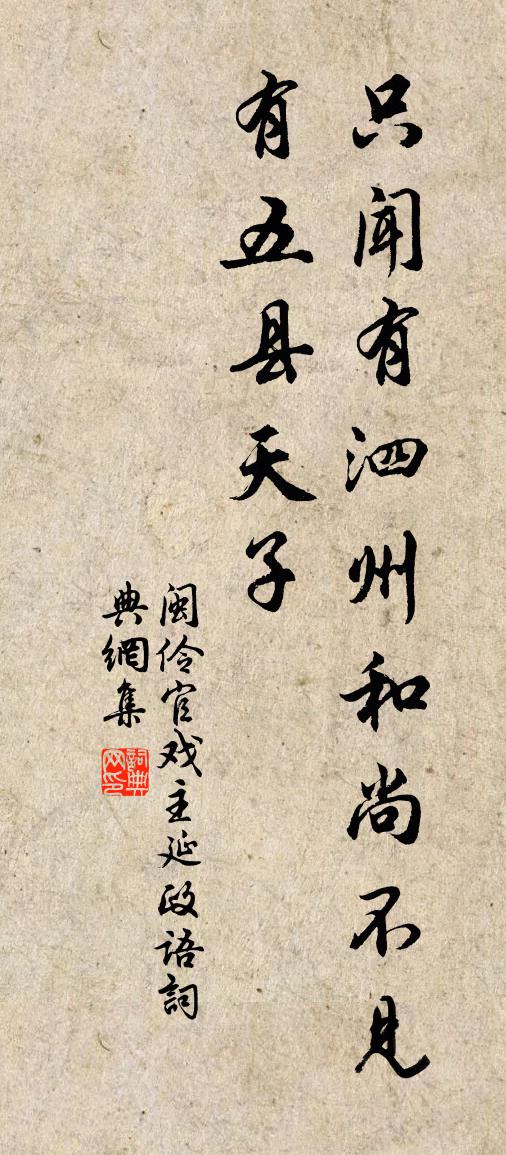 只闻有泗州和尚不见
有五县天子
闽伶官戏主延政语詞
典網集
詞典网印